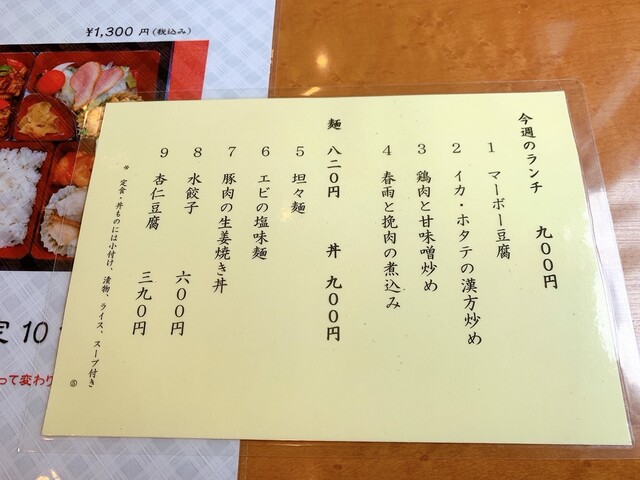 今週のランチ　九００円
1　マーボー豆腐
2　イカ・ホタテの漢方炒め
3　鶏肉と甘味噌炒め
4　春雨と挽肉の煮込み
麺　八二０円　丼　九００円
5　坦々麺
6　エビの塩味麺
7　豚肉の生姜焼き丼
8　水餃子　六００円
9　杏仁豆腐　三九０円
＊ 定食・丼ものには小付け、漬物、ライス、スープ付き
⑤
¥1,300 円（税込み）
定 10
って変わり